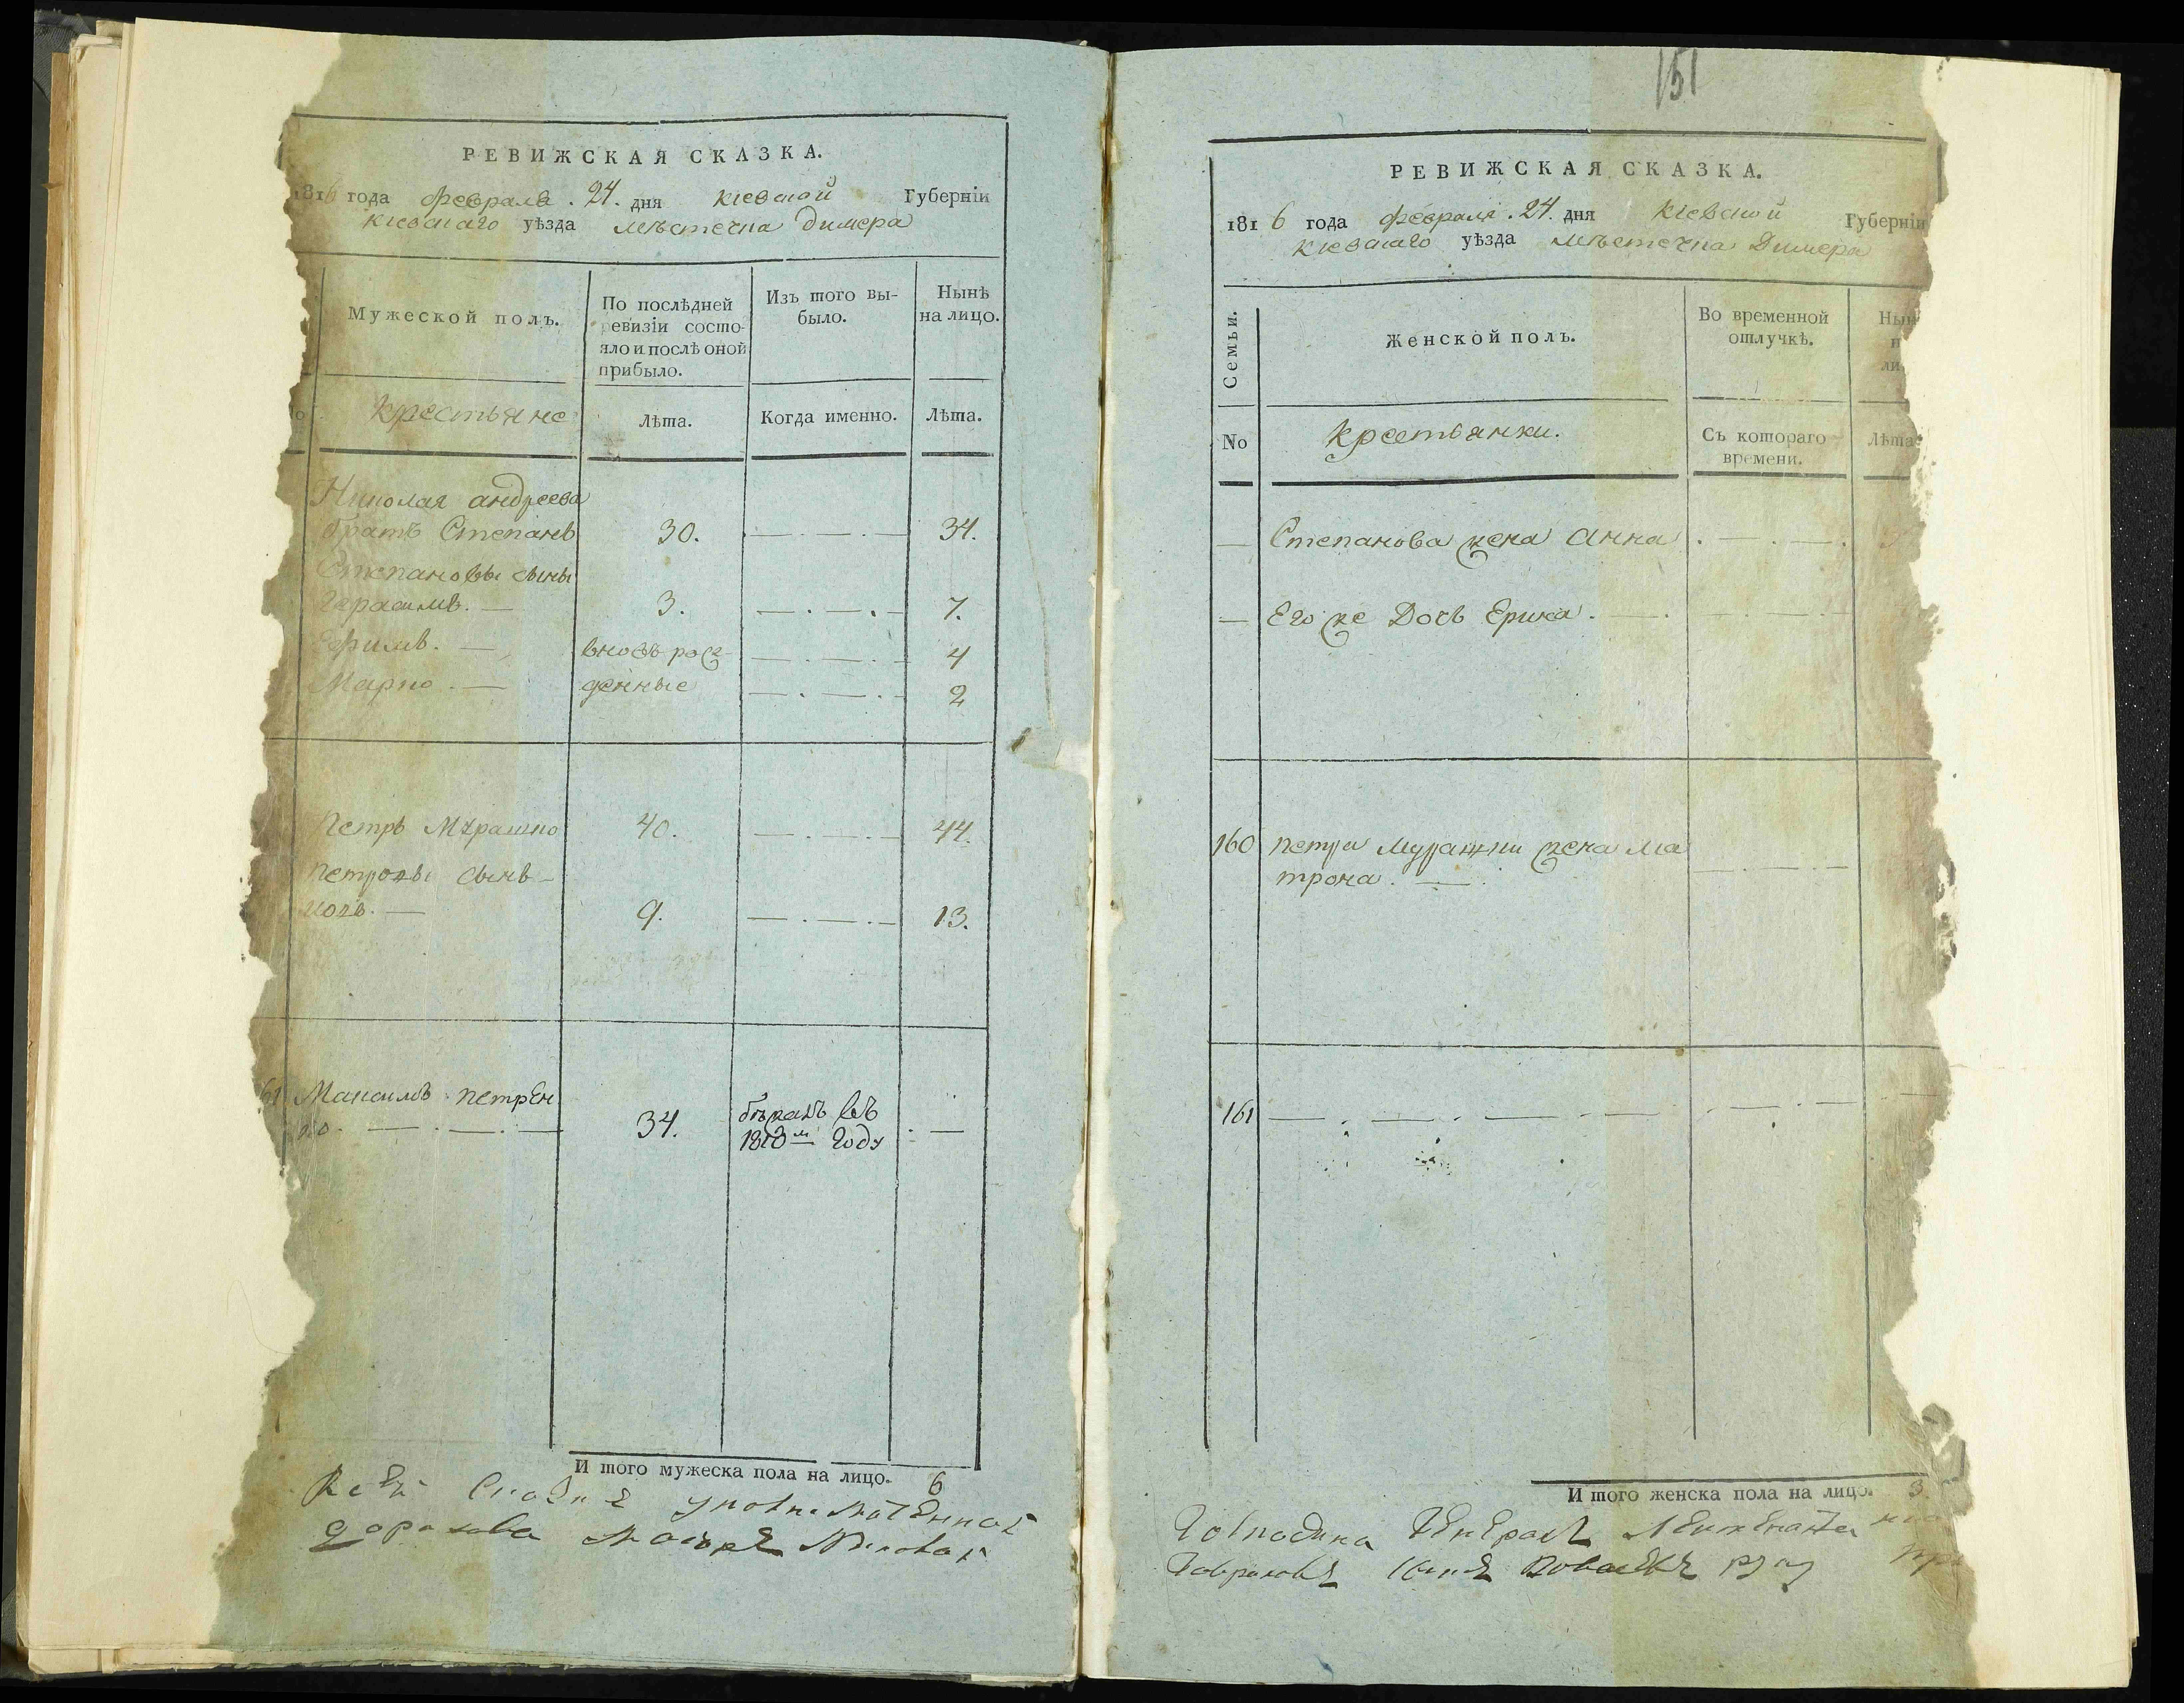 РЕВИЖСКАЯ СКАЗКА.
1816 года февраля . 24. дня Кіевской Губерніи
Кіевскаго уѣзда мѣстечка Димера
Мужеской полъ.
По послѣдней
ревизіи состо-
яло и послѣ оной
прибыло.
Изъ того вы-
было.
Нынѣ
на лицо.
крестьяне
Лѣта.
Когда именно.
Лѣта.
Николая андреева
братъ Степанъ 30. — . — . — 34.
Степановы сыны
Герасимъ. — 3. — . — . — 7.
Ефимъ. — вновь рож- — . — . — 4
Марко . — денные — . — . — 2
Петръ Мурашко 40. — . — . — 44.
Петровы сынъ —
9. — . — . — 13.
61 Максимъ петрен
ко. — . — . — 34. бѣжалъ въ . —
1813 м году
И того мужеска пола на лицо. 6
151
РЕВИЖСКАЯ СКАЗКА.
1816 года февраля . 24. дня Кіевской Губерніи
Кіевскаго уѣзда мѣстечка Димера
Семьи.
Женской полъ.
Во временной
отлучкѣ.
Нын
н
ли
No
крестьянки.
Съ котораго
времени.
Лѣта
— Степанова жена Анна . — . — .
— Его же Дочь . — . — . —
160 петра Мурашки жена Ма
трона . — . — . — . —
161 — . — . — . — . — . —
И того женска пола на лицо. 3.
Господина Генералъ Лейтенанта